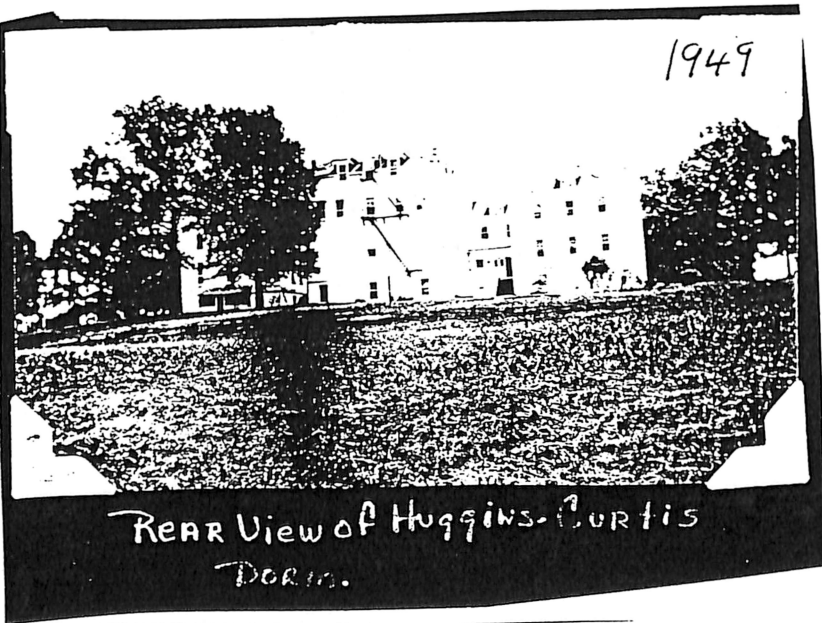 1949
Rear View of Huggins-Curtis
Dorm.